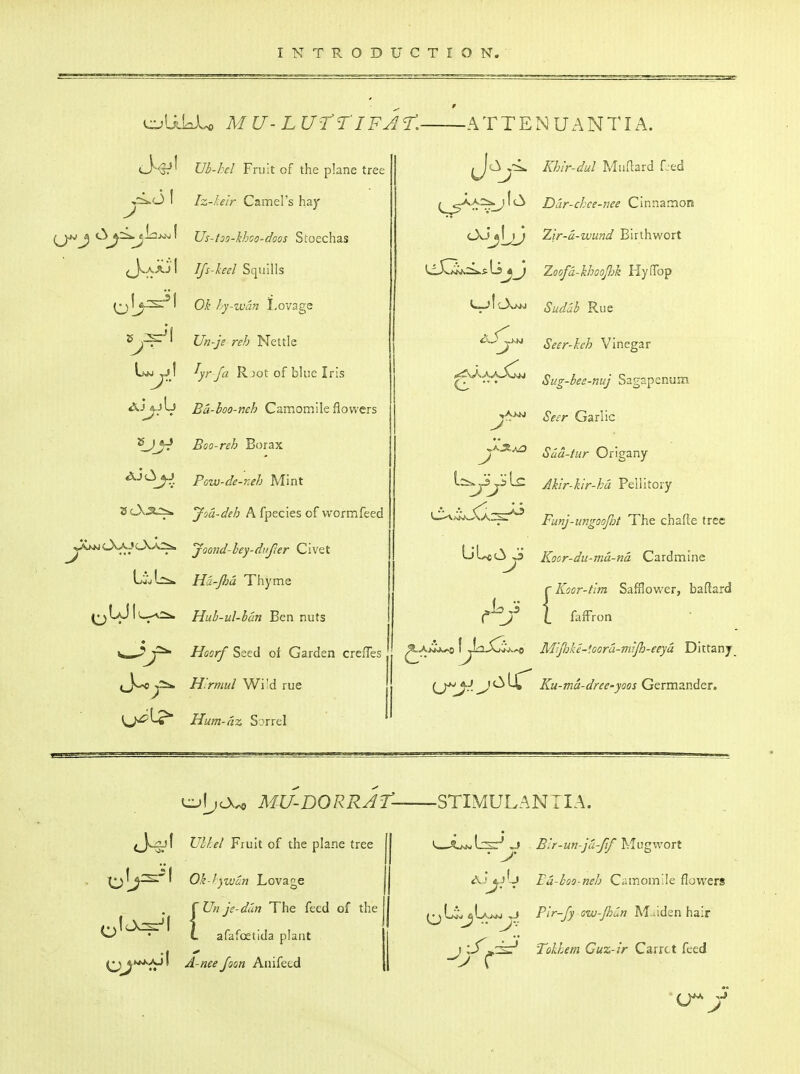 INTRODUCTION.
ملطفات MU-LUTTIFAT.——ATTENUANTIA.
ابهل Ub-hel Fruit of the plane tree
اذخر Iz-keir Camel's hay
اسطوخودوس Us-too-khoo-doos Stoechas
اسقيل Iſs-keel Squills
Ok hy-wán Lovage
انجره Un-je reh Nettle
ايرسا Iyr-ſa Root of blue Iris
بابونه Bá-boo-neh Camomile flowers
بوره Boo-reh Borax
بودنه Pow-de-neh Mint
جعده Joá-deh A ſpecies of wormſeed
جندبيدستر Joond-bey-duſter Civet
حاشا Há-ſhá Thyme
حب البان Hub-ul-bán Ben nuts
حرف Hoorf Seed of Garden creſſes
حرمل Hirmul Wild rue
Hum-áz Sorrel
خردل Khir-dul Muſtard ſeed
دارچيني Dár-chee-nee Cinnamon
زراوند Zir-á-wund Birthwort
زوفا خشك Zoofá-khooſhk Hyſſop
سداب Sudáb Rue
سركه Seer-keh Vinegar
سكبينج Sug-bee-nuj Sagapenum
سير Seer Garlic
صعتر Sáá-tur Origany
عاقرقرحا Akir-kir-há Pellitory
فنجنكشت Funj-ungooſht The chaſte tree
قردمانا Koor-du-má-ná Cardmine
قرطم Koor-tim Safflower, baſtard
ſaffron
مشكطرامشيع Miſhke-toorá-miſh-eeyá Dittany
Ku-má-dree-yoos Germander.
مدرات MU-DORRAT——STIMULANTIA.
ابهل Ubhel Fruit of the plane tree
Ok-hywán Lovage
انجدان Un je-dán The ſeed of the
aſafœtida plant
انيسون A-nee ſoon Aniſeed
برنجاسف Bir-un-já-ſif Mugwort
بابونه Bá-boo-neh Camomile flowers
پرسياوشان Pir-ſy ow-ſhán Maiden hair
تخم گزر Tokhem Guz-ir Carrot ſeed